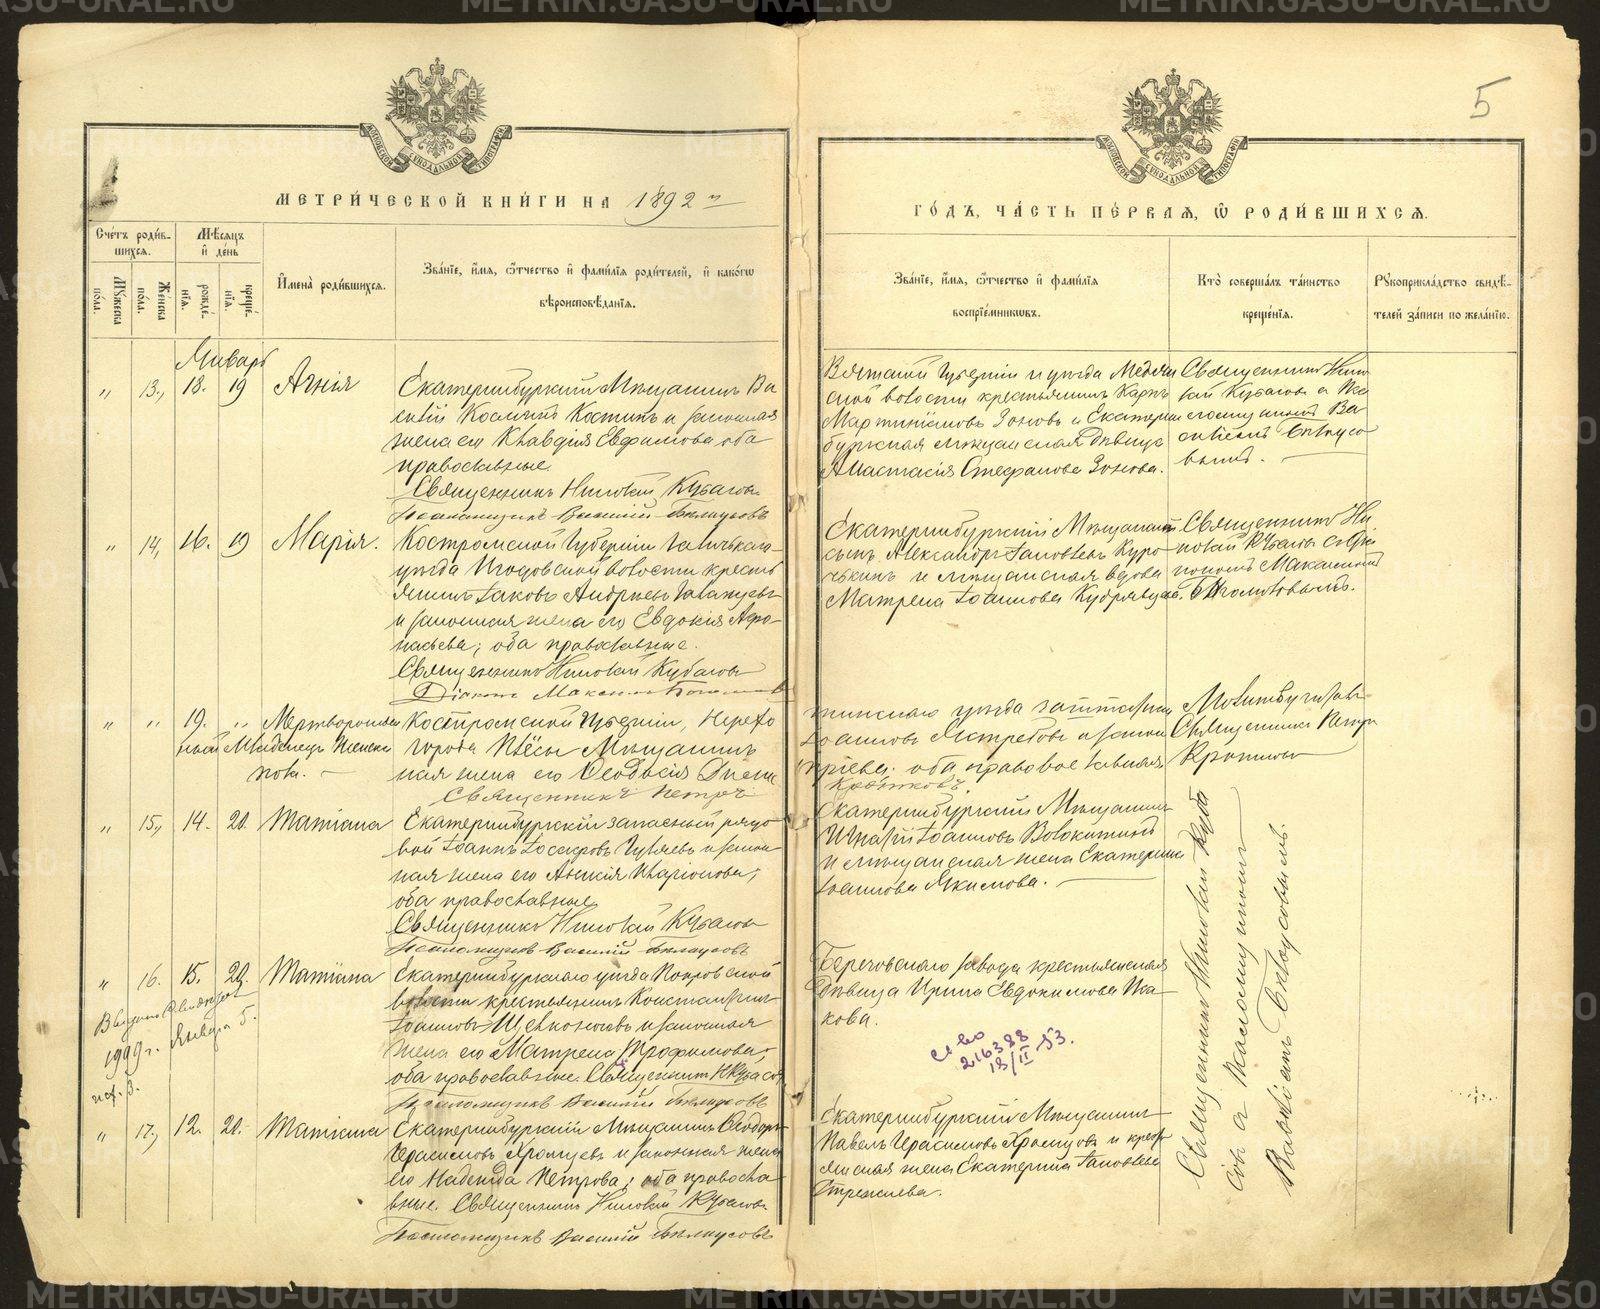 5
МЕТРИ́ЧЕСКОЙ КНИ́ГИ НА 1892 й
ГО́ДЪ, ЧА́СТЬ ПЕ́РВАЯ, Ѡ РОДИ́ВШИХСЯ.
Сче́тъ роди́в-
шихся.
Мѣ́сяцъ
и҆ де́нь
Му́жеска
по́ла.
Же́нска
по́ла.
рожде́-
нїя.
креще́-
нїя.
И҆мена̀ роди́вшихся.
Зва́нїе, и҆́мя, ѻ҆́тчество и҆ фами́лїя роди́телей, и҆ како́гѡ
вѣроисповѣ́данїя.
Зва́нїе, и҆́мя, ѻ҆́тчество и҆ фами́лїя
воспрїе́мникѡвъ.
Кто̀ соверша́лъ та́инство
креще́нїя.
Рꙋкоприкла́дство свидѣ́-
телей за́писи по жела́нїю.
Январь
„ 13., 18. 19 Агнія
Екатеринбургскій Мѣщанинъ Ва
силій Космичъ Костинъ и законная
жена его Клавдія Евфимова оба
православные.
Священникъ Николай Кубасовъ
Псаломщикъ Василій Бѣлоусовъ
Вятской Губерніи и уѣзда Медян
ской волости крестьянинъ Карпъ
Мартиніановъ Зоновъ и Екатерин
бургская мѣщанская дѣвица
Анастасія Стефанова Зонова.
Священникъ Нико
лай Кубасовъ с Пса
ломщикомъ Ва
силіемъ Бѣлоусо
вымъ.
„ 14, 16. 19 Марія.
Костромской Губерніи Галичскаго
уѣзда Игодовской волости кресть
янинъ Іаковъ Андреевъ
и законная жена его Евдокія Афо-
насьева; оба православные.
Священникъ Николай Кубасовъ
Діаконъ Максимъ
Екатеринбургскій Мѣщанскій
сынъ Александръ Іаковлевъ Куро-
чкинъ и мѣщанская вдова
Матрена Іоаннова Кудрявцева.
Священникъ Ни
колай Кубасовъ с Діа
кономъ Максимомъ
„ „ 19. „ Мертворожден
ный Младенецъ Женска
пола.
Костромской Губерніи, Нерехо
города Плёсы Мѣщанинъ
ная жена его Феодосія
Священникъ Петръ
тинскаго уѣзда заштатнаго
Іоанновъ Ястребовъ и закон
тріева, оба православные
Молитву читалъ
Священникъ Петръ
„ 15, 14. 20. Татіана
Екатеринбургскій запасный рядо
вой Іоаннъ Іосифовъ Гуляевъ и закон
ная жена его Анисія Иларіонова,
оба православные.
Священникъ Николай Кубасовъ
Псаломщикъ Василій Бѣлоусовъ
Екатеринбургскій Мѣщанинъ
Игнатій Іоанновъ Волокитинъ
и мѣщанская жена Екатерина
Іоаннова Якимова.
Священникъ Николай Куба
совъ с Псаломщикомъ
Василіемъ Бѣлоусовымъ.
„ 16. 15. 20. Татіана
Екатеринбургскаго уѣзда Покровской
волости крестьянинъ Константинъ
Іоанновъ Щелконоговъ и законная
жена его Матрена Трофимова,
оба православные. Священникъ Н Кубасов
Псаломщикъ Василій Бѣлоусовъ
Березовскаго завода крестьянская
дѣвица Ирина Евдокимова Иса
кова.
Января 5.
св-во
216388
18/II 53.
„ 17., 12. 20. Татіана
Екатеринбургскій Мѣщанинъ Ѳеодоръ
Герасимовъ Хромцевъ и законная жена
его Надежда Петрова; оба правосла
вные. Священникъ Николай Кубасовъ
Псаломщикъ Василій Бѣлоусовъ
Екатеринбургскій Мѣщанинъ
Павелъ Герасимовъ Хромцовъ и кресть
янская жена Екатерина Іаковлева
Стрекалева.
METRIKI.GASU-URAL.RU